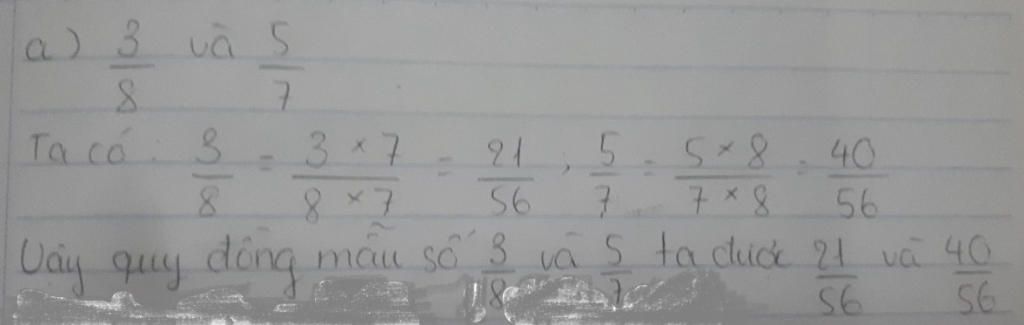 a) 3/8 và 5/7
Ta có: 3/8 = 3 × 7/8 × 7 = 21/56, 5/7 = 5 × 8/7 × 8 = 40/56
Vậy quy đồng mẫu số 3/8 và 5/7 ta được 21/56 và 40/56